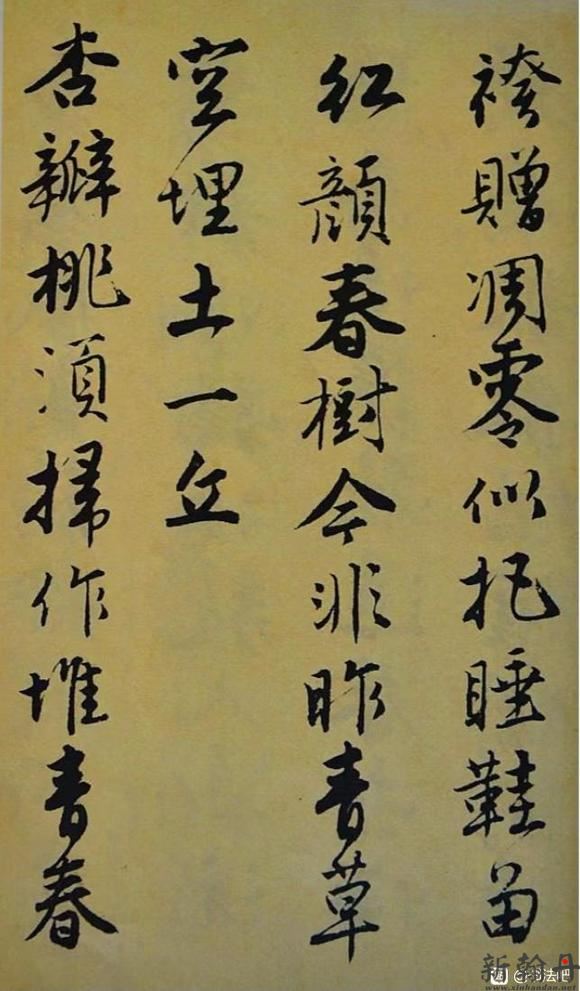 袴贈凋零似把睡鞋留
紅顏春樹今非昨青草
空埋土一丘
杏瓣桃須掃作堆青春
新翰丹
www.xinhandan.net